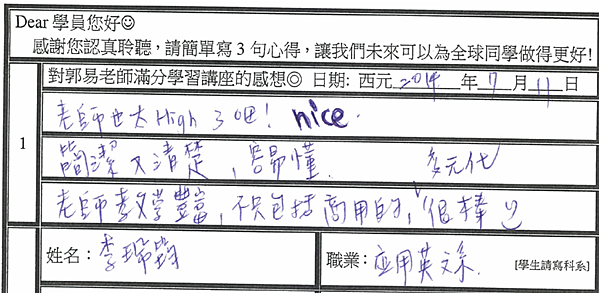 Dear 學員您好☺
感謝您認真聆聽，請簡單寫3句心得，讓我們未來可以為全球同學做得更好!
對郭易老師滿分學習講座的感想◎ 日期: 西元 2014 年 7 月 11 日
1
老師也太High了吧! nice.
簡潔又清楚，容易懂. 多元化
老師教學豐富，不只包括商用的，很棒☺
姓名：李
職業：应用英文系. [學生請寫科系]